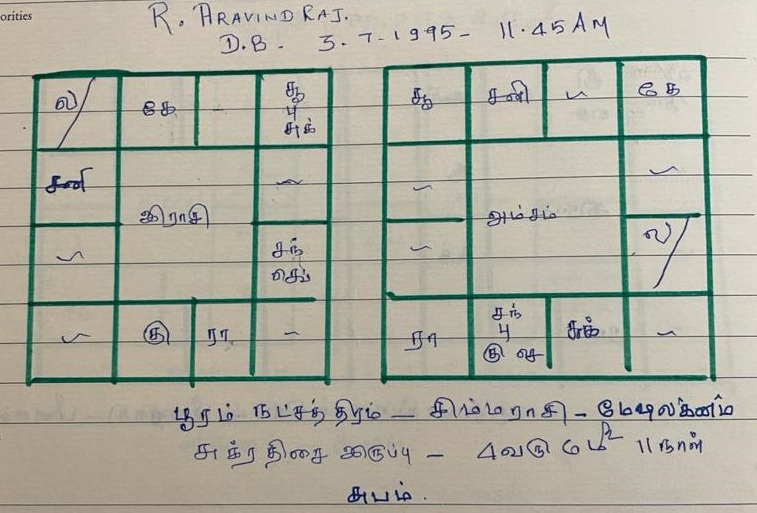 orities
R. ARAVINDRAJ.
D.B. - 3-7-1995- 11.45 AM
ல/ கே சூ
பு
சுக்
சனி
இராசி
சந்
செவ்
கு ரா
சூ சனி கே
அம்சம்
ல/
ரா சந் சுக்
பு
கு செ
பூரம் நட்சத்திரம் – சிம்மராசி – மேஷலக்னம்
சுக்ர திசை இருப்பு – 4வரு 11நாள்
சுபம்.